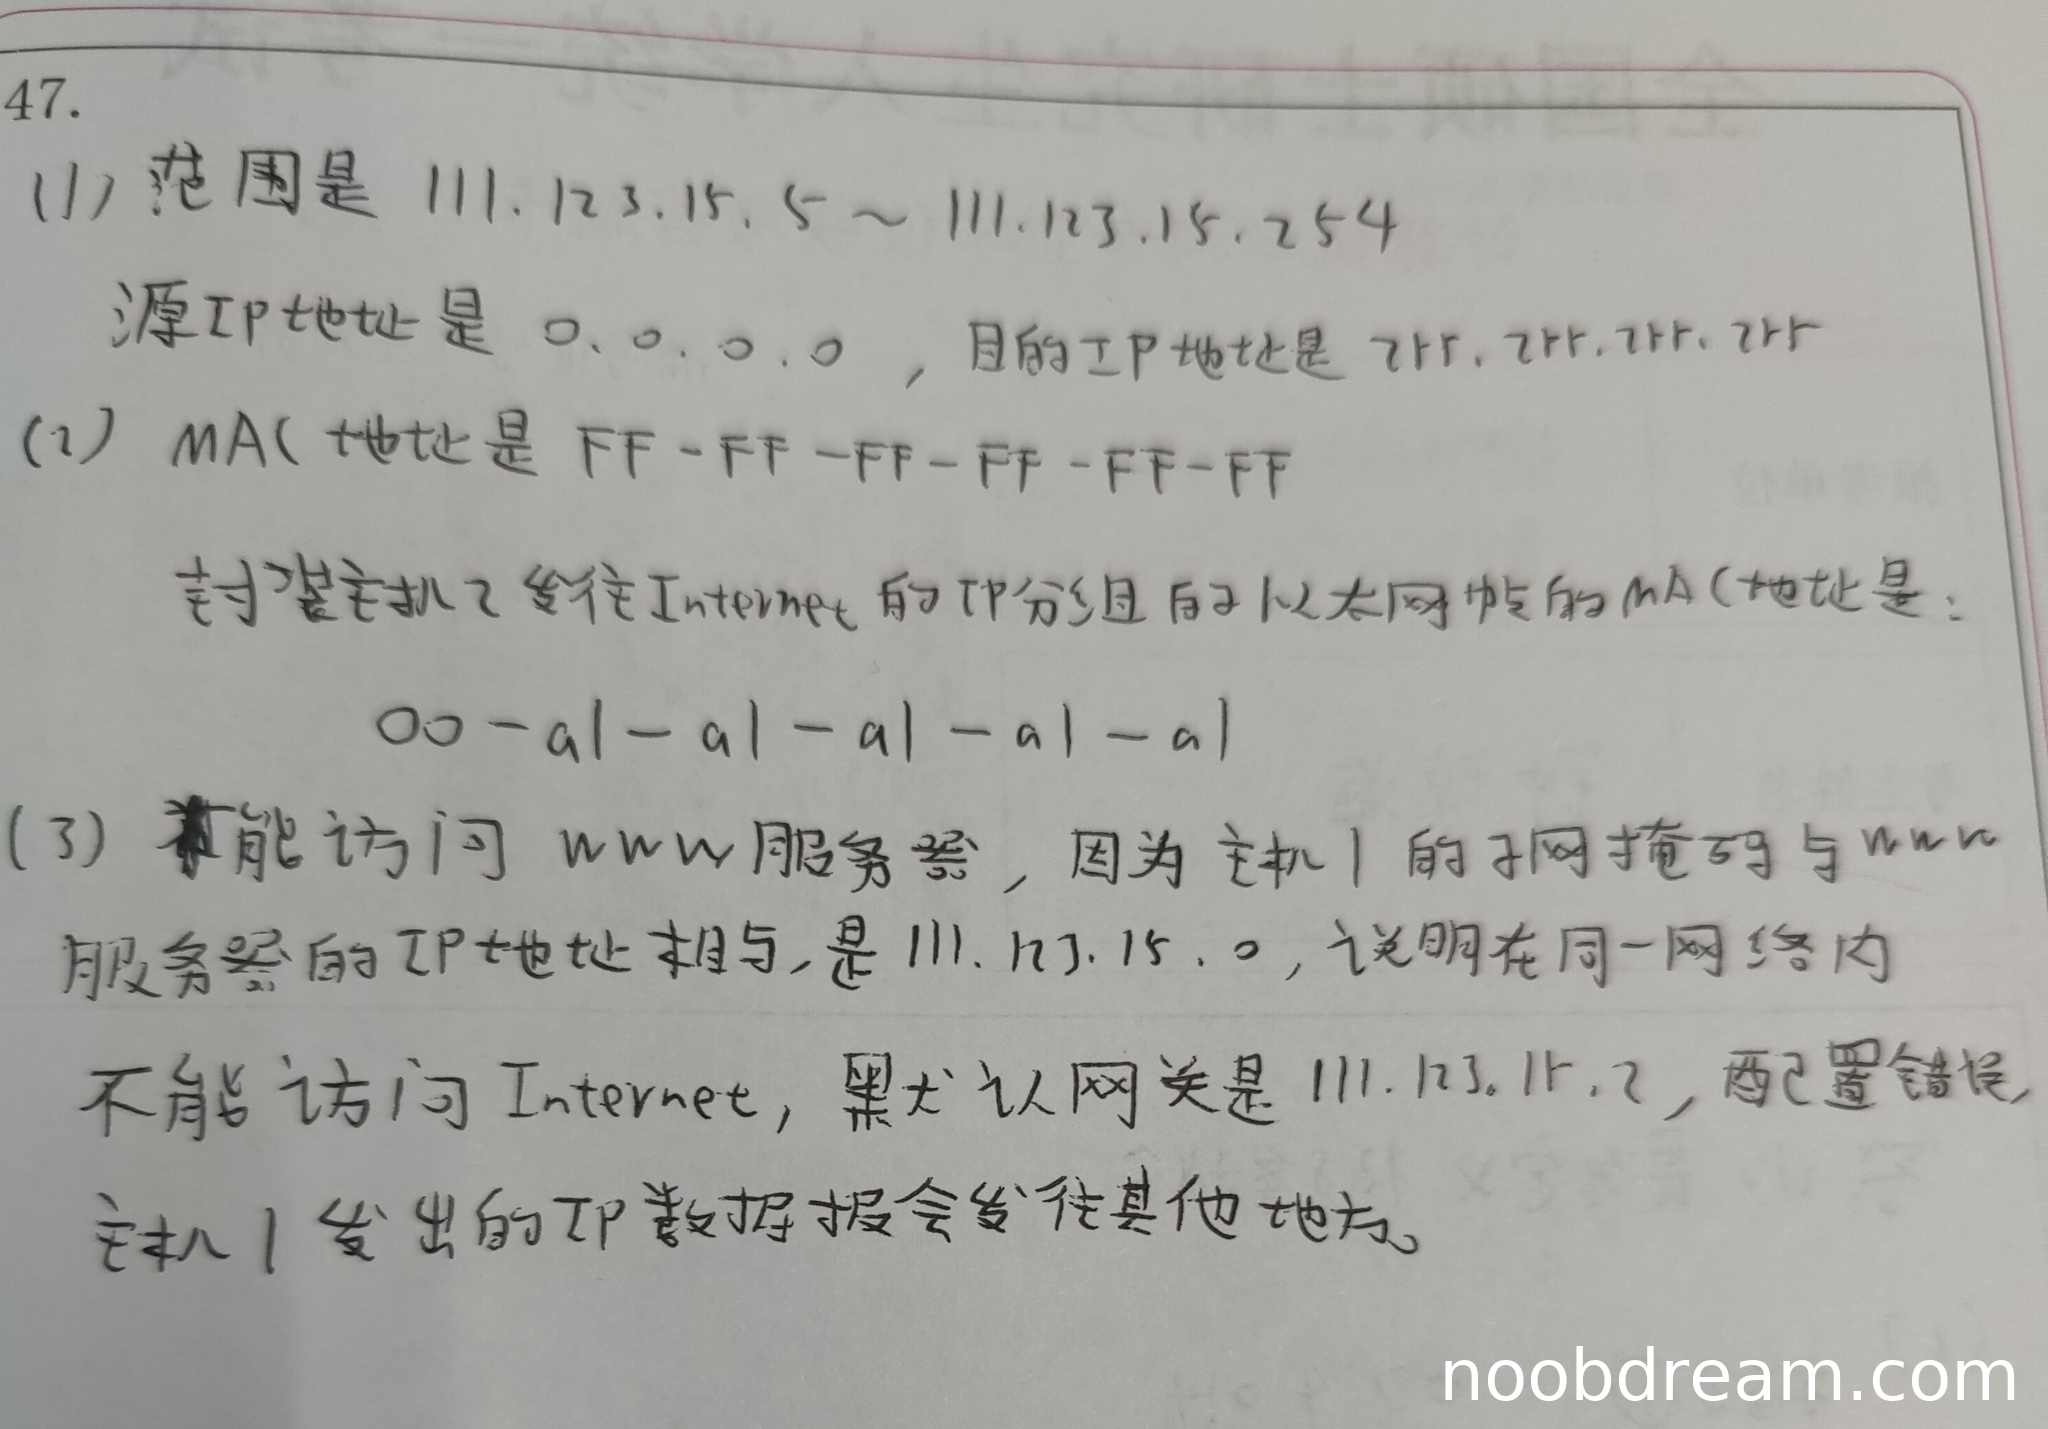 47.
(1) 范围是 111.123.15.5 ~ 111.123.15.254
源IP地址是 0.0.0.0 , 目的IP地址是 255.255.255.255
(2) MAC地址是 FF-FF-FF-FF-FF-FF
封装主机2发往Internet的IP分组的以太网帧的MAC地址是:
00-a1-a1-a1-a1-a1
(3) 能访问 WWW服务器, 因为主机1的子网掩码与WWW
服务器的IP地址相与,是111.123.15.0, 说明在同一网络内
不能访问Internet, 默认网关是111.123.15.2, 配置错误,
主机1发出的IP数据报会发往其他地方。
noobdream.com